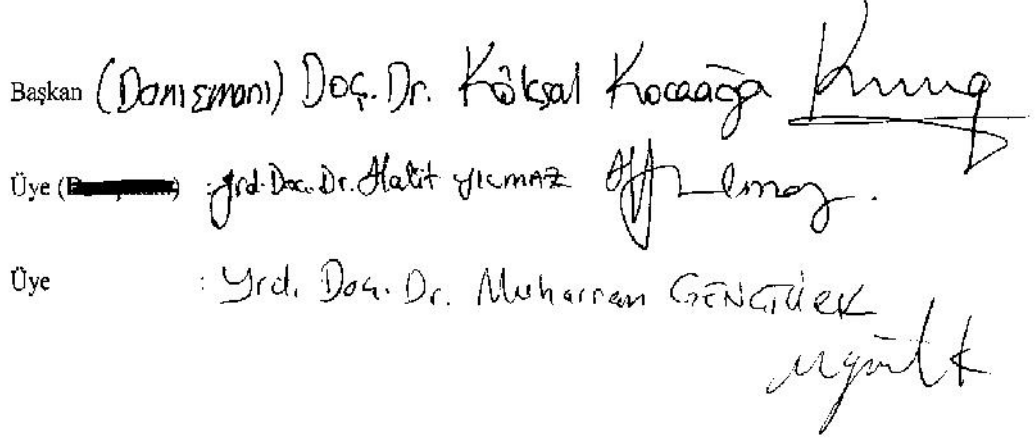 Başkan (Danışmanı) Doç. Dr. Köksal Kocaağa
Üye : Yrd. Doç. Dr. Halit YILMAZ
Üye : Yrd. Doç. Dr. Muharrem GENCTÜRK